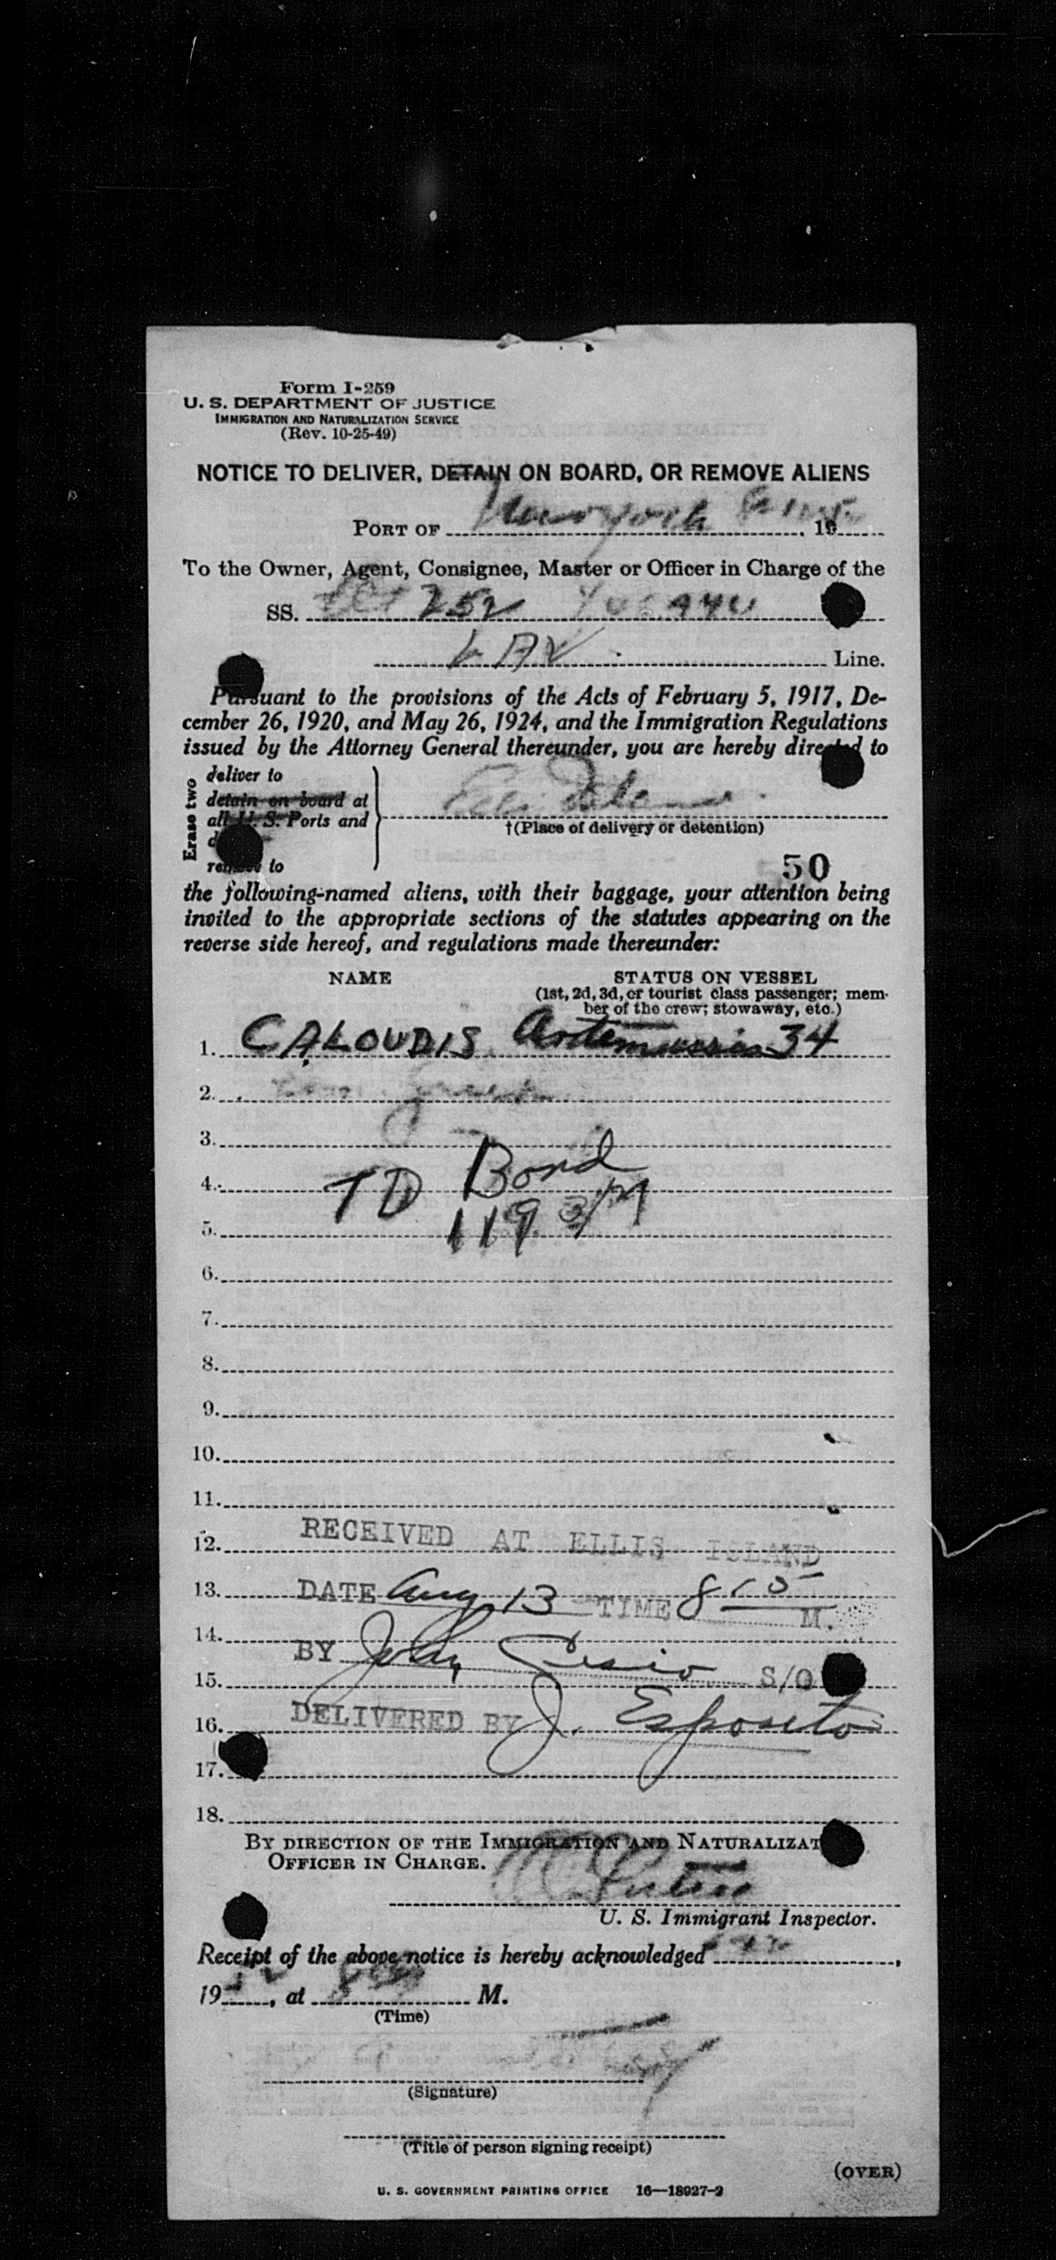 Form I-259
U. S. DEPARTMENT OF JUSTICE
IMMIGRATION AND NATURALIZATION SERVICE
(Rev. 10-25-49)
NOTICE TO DELIVER, DETAIN ON BOARD, OR REMOVE ALIENS
PORT OF New York, 19
To the Owner, Agent, Consignee, Master or Officer in Charge of the
SS. 252
LAV Line.
Pursuant to the provisions of the Acts of February 5, 1917, De-
cember 26, 1920, and May 26, 1924, and the Immigration Regulations
issued by the Attorney General thereunder, you are hereby directed to
Erase two
deliver to
detain on board at
all U. S. Ports and
remove to
Ellis Island
†(Place of delivery or detention)
50
the following-named aliens, with their baggage, your attention being
invited to the appropriate sections of the statutes appearing on the
reverse side hereof, and regulations made thereunder:
NAME STATUS ON VESSEL
(1st, 2d, 3d, or tourist class passenger; mem-
ber of the crew; stowaway, etc.)
1. CALOUDIS 34
2.
3.
4. TD Bond
5. 119
6.
7.
8.
9.
10.
11.
12. RECEIVED AT ELLIS ISLAND
13. DATE Aug 13 TIME 8 15 M.
14.
15. BY John S/O
16. DELIVERED BY J. Esposito
17.
18.
BY DIRECTION OF THE IMMIGRATION AND NATURALIZAT
OFFICER IN CHARGE.
U. S. Immigrant Inspector.
Receipt of the above notice is hereby acknowledged ,
19 , at M.
(Time)
(Signature)
(Title of person signing receipt)
(OVER)
U. S. GOVERNMENT PRINTING OFFICE 16—18927-2